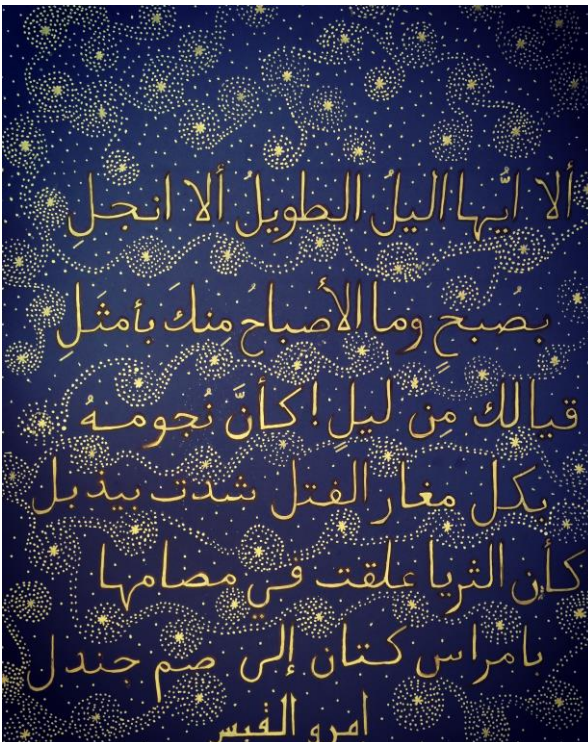 ألا ايُّها اليلُ الطويلُ ألا انجلِ
بصُبحٍ وما الأصباحُ مِنكَ بأمثَلِ
قيالك مِن ليلٍ! كأنَّ نُجومهُ
بكل مغار الفتل شدت بيذبل
كأن الثريا علقت في مصامها
بامراس كتان إلى صم جندل
امرو القيس